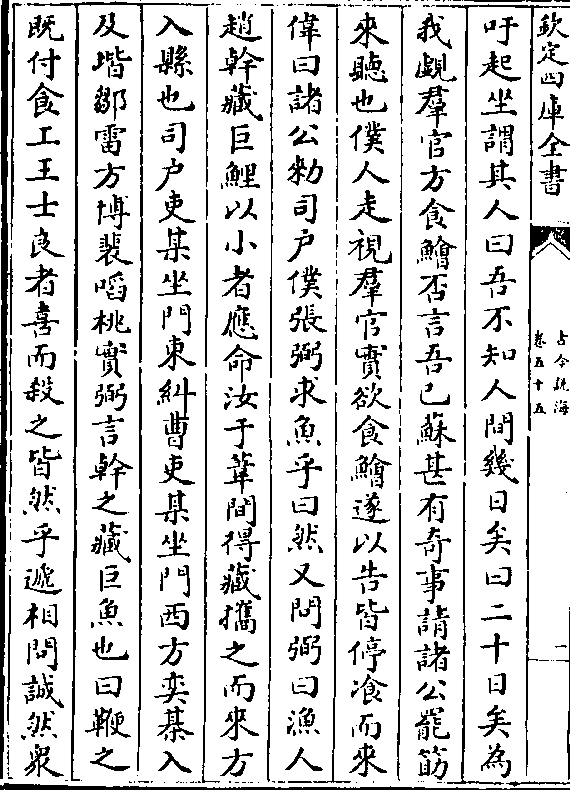 欽定四庫全書
古今説海
卷五十五
二
吁起坐謂其人曰吾不知人間幾日矣曰二十日矣為
我覷羣官方食鱠否言吾已蘇甚有奇事請諸公罷筯
來聽也僕人走視羣官實欲食鱠遂以告皆停飡而來
偉曰諸公勑司户僕張弼求魚乎曰然又問弼曰漁人
趙幹藏巨鯉以小者應命汝于葦間得藏攜之而來方
入縣也司户吏某坐門東糾曹吏某坐門西方奕棊入
及堦鄒雷方博裴啗桃實弼言幹之藏巨魚也曰鞭之
既付食工王士良者喜而殺之皆然乎遞相問誠然衆